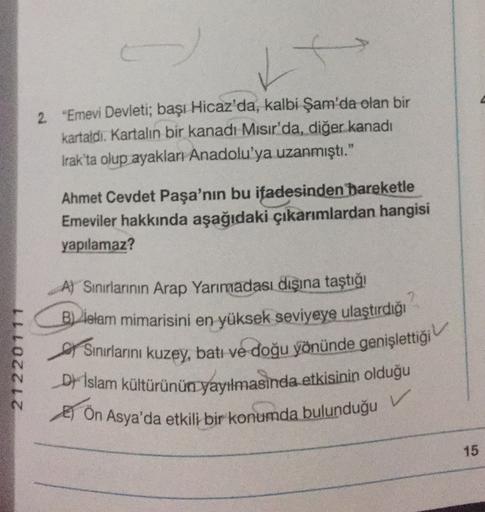 2. "Emevi Devleti; başı Hicaz'da, kalbi Şam'da olan bir
kartaldı. Kartalın bir kanadı Mısır'da, diğer kanadı
Irak'ta olup ayakları Anadolu'ya uzanmıştı."
Ahmet Cevdet Paşa'nın bu ifadesinden hareketle
Emeviler hakkında aşağıdaki çıkarımlardan hangisi
yapılamaz?
A) Sınırlarının Arap Yarımadası dışına taştığı
B) İslam mimarisini en yüksek seviyeye ulaştırdığı ?
C) Sınırlarını kuzey, batı ve doğu yönünde genişlettiği
D) İslam kültürünün yayılmasında etkisinin olduğu
E) Ön Asya'da etkili bir konumda bulunduğu
21220111
15